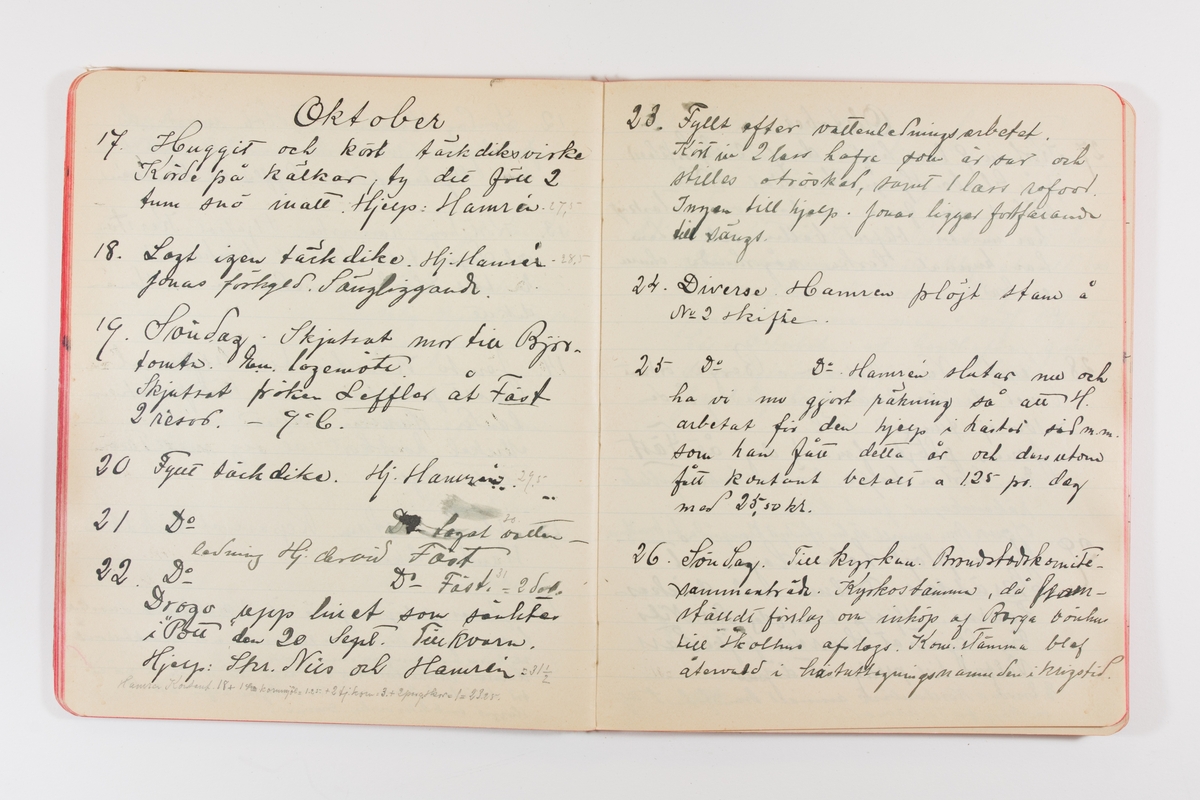 Oktober
17. Huggit och kört täckdiksvirke
Körde på kälkar, ty det föll 2
tum snö inatt. Hjelp: Hamrén. 27,5
18. Lagt igen täckdike. Hj. Hamrén 28,5
Jonas förkyld. Sängliggande.
19. Söndag. Skjutsat mor till Björ-
tomtn. Em. logemöte.
Skjutsat fröken Leffler åt Fäst
2 resor. — 9° C.
20 Fyllt täckdike. Hj. Hamrén. 29,5
21 Do Do Lagat vatten-
ledning Hj. Fäst 30
22. Do Do Fäst. 31
Drogo upp linet som sänktes
i "Pott" den 20 Sept. Till kvarn.
Hjelp: Skr. Nils och Hamrén = 31½
Hamrén
23. Fyllt efter vattenledningsarbetet.
Kört in 2 lass hafre som är sur och
stilles otröskad, samt 1 lass rofoor.
Ingen till hjelp. Jonas ligger fortfarande
till sängs.
24. Diverse. Hamrén plöjt stam å
No 2 skifte.
25 Do Do Hamrén slutar nu och
ha vi nu gjort räkning så att H.
arbetat för den hjelp i hästar säd m.m.
som han fått detta år och dessutom
fått kontant betalt a 125 pr. dag
med 25,50 kr.
26. Söndag. Till kyrkan. Brandstodskomité-
sammanträde. Kyrkostämma, då fram-
ställdt förslag om inköp af Berga
till skolhus afslogs. Kom. stämma blef
återvald i hästuttagningsnämnden i krigstid.